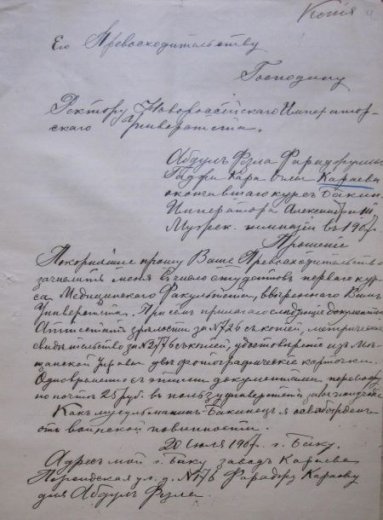 Копія
Его Превосходительству
Господину
Ректору Новороссійскаго Император-
скаго Университета.
Абдулъ
Кара оглы Караева
окончившаго курсъ Бакин.
Императора Александра III
Мужск. гимназіи въ 190
Прошеніе
Покорнѣйше прошу Ваше Превосходительство
зачислить меня въ число студентовъ перваго кур-
са Медицинскаго Факультета, ввѣреннаго Вамъ
Университета. При семъ прилагаю слѣдующіе документы
Аттестатъ зрѣлости за № съ копіей, метрическое
свидѣтельство за № съ копіей, удостовѣреніе изъ
Управы двѣ фотографическія карточки.
Одновременно съ этими документами
по почтѣ 25 руб. въ пользу университета
Какъ мусульманинъ-Бакинецъ я освобожденъ
отъ воинской повинности.
20 Іюля 190 г. Баку.
Адресъ мой г. Баку заводъ Караева
ул. д. № Караеву
для Абдулъ